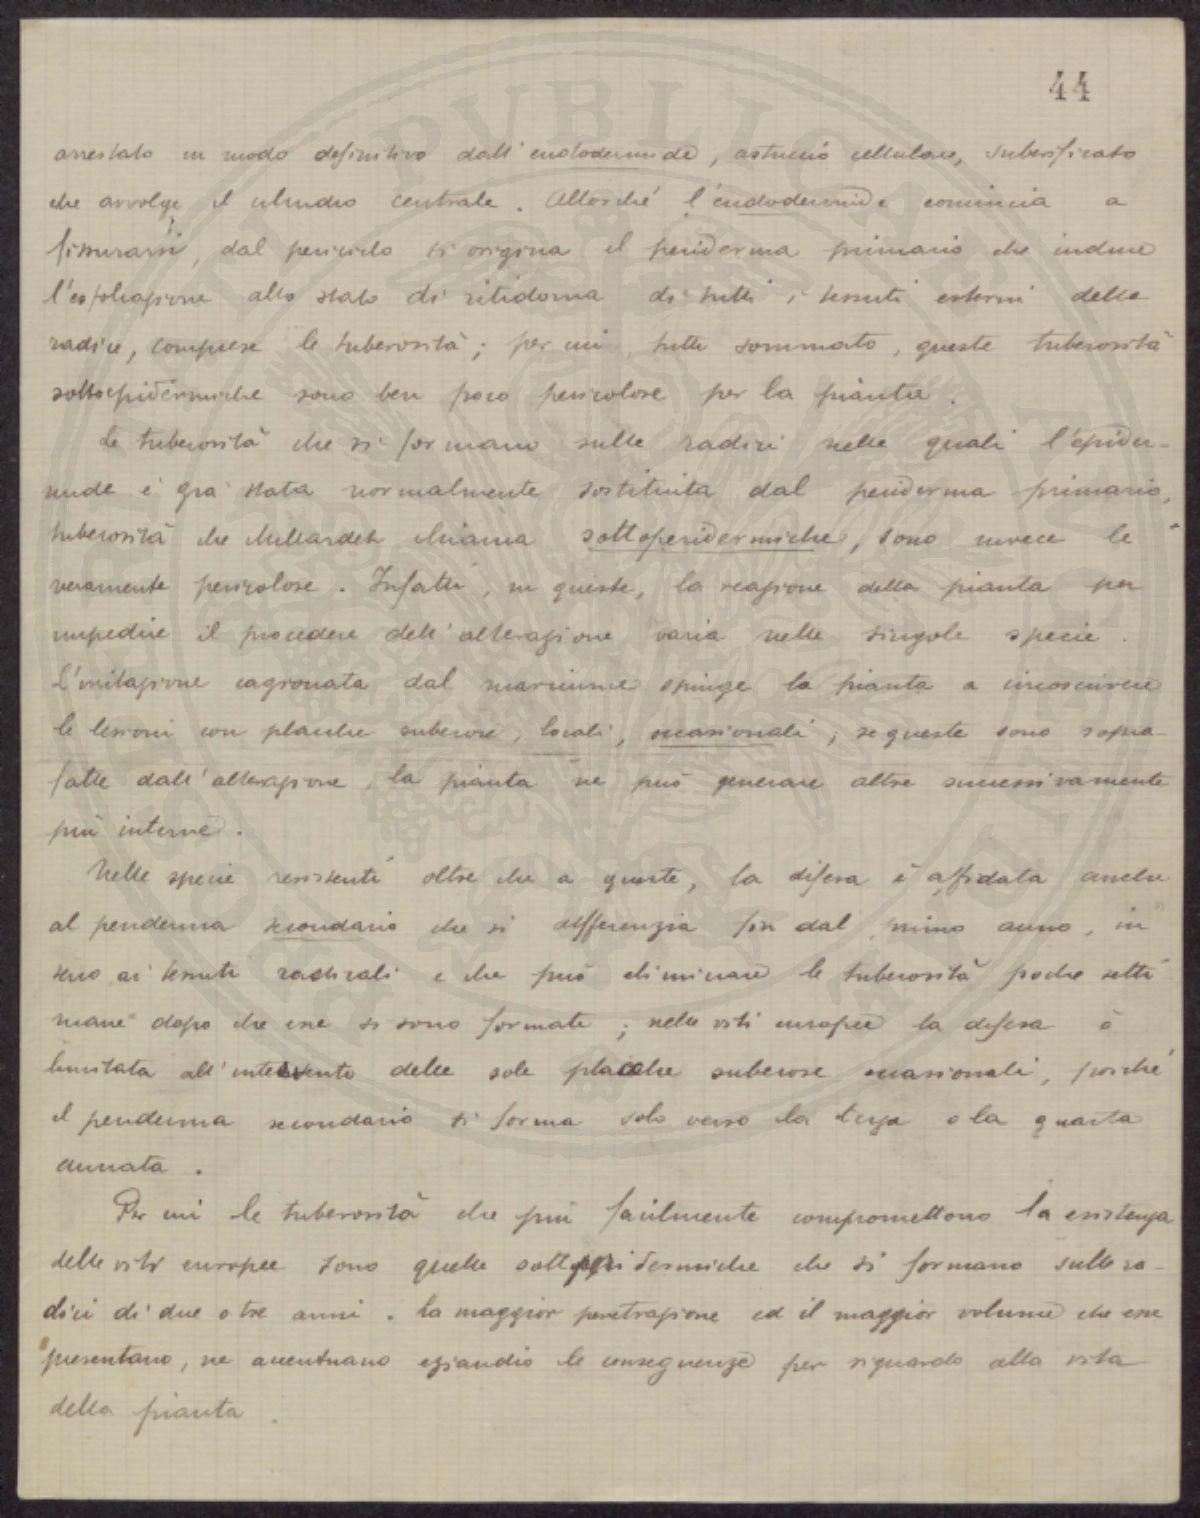 44
arrestato in modo definitivo dall'endodermide, astuccio cellulare, suberificato
che avvolge il cilindro centrale. Allorché l'endodermide comincia a
fissurarsi, dal periciclo si origina il periderma primario che induce
l'esfoliazione allo stato di ritidoma di tutti i tessuti esterni della
radice, comprese le tuberosità; per cui, tutto sommato, queste tuberosità
sottoepidermiche sono ben poco pericolose per la pianta.
Le tuberosità che si formano sulle radici nelle quali l'epider-
mide è già stata normalmente sostituita dal periderma primario,
tuberosità che Millardet chiama sottoperidermiche, sono invece le
veramente pericolose. Infatti, in queste, la reazione della pianta per
impedire il procedere dell'alterazione varia nelle singole specie.
L'irritazione cagionata dal marciume spinge la pianta a circoscrivere
le lesioni con placche suberose, locali, occasionali; se queste sono sopra-
fatte dall'alterazione, la pianta ne può generare altre successivamente
più interne.
Nelle specie resistenti oltre che a queste, la difesa è affidata anche
al periderma secondario che si differenzia fin dal primo anno, in
seno ai tessuti radicali e che può eliminare le tuberosità poche setti
mane dopo che esse si sono formate; nelle viti europee la difesa è
limitata all'intervento delle sole placche suberose occasionali, poiché
il periderma secondario si forma solo verso la terza o la quarta
annata.
Per cui le tuberosità che più facilmente compromettono la esistenza
delle viti europee sono quelle sottoperidermiche che si formano sulle ra-
dici di due o tre anni. La maggior penetrazione ed il maggior volume che esse
presentano, ne accentuano eziandio le conseguenze per riguardo alla vita
della pianta.
PUBLICA